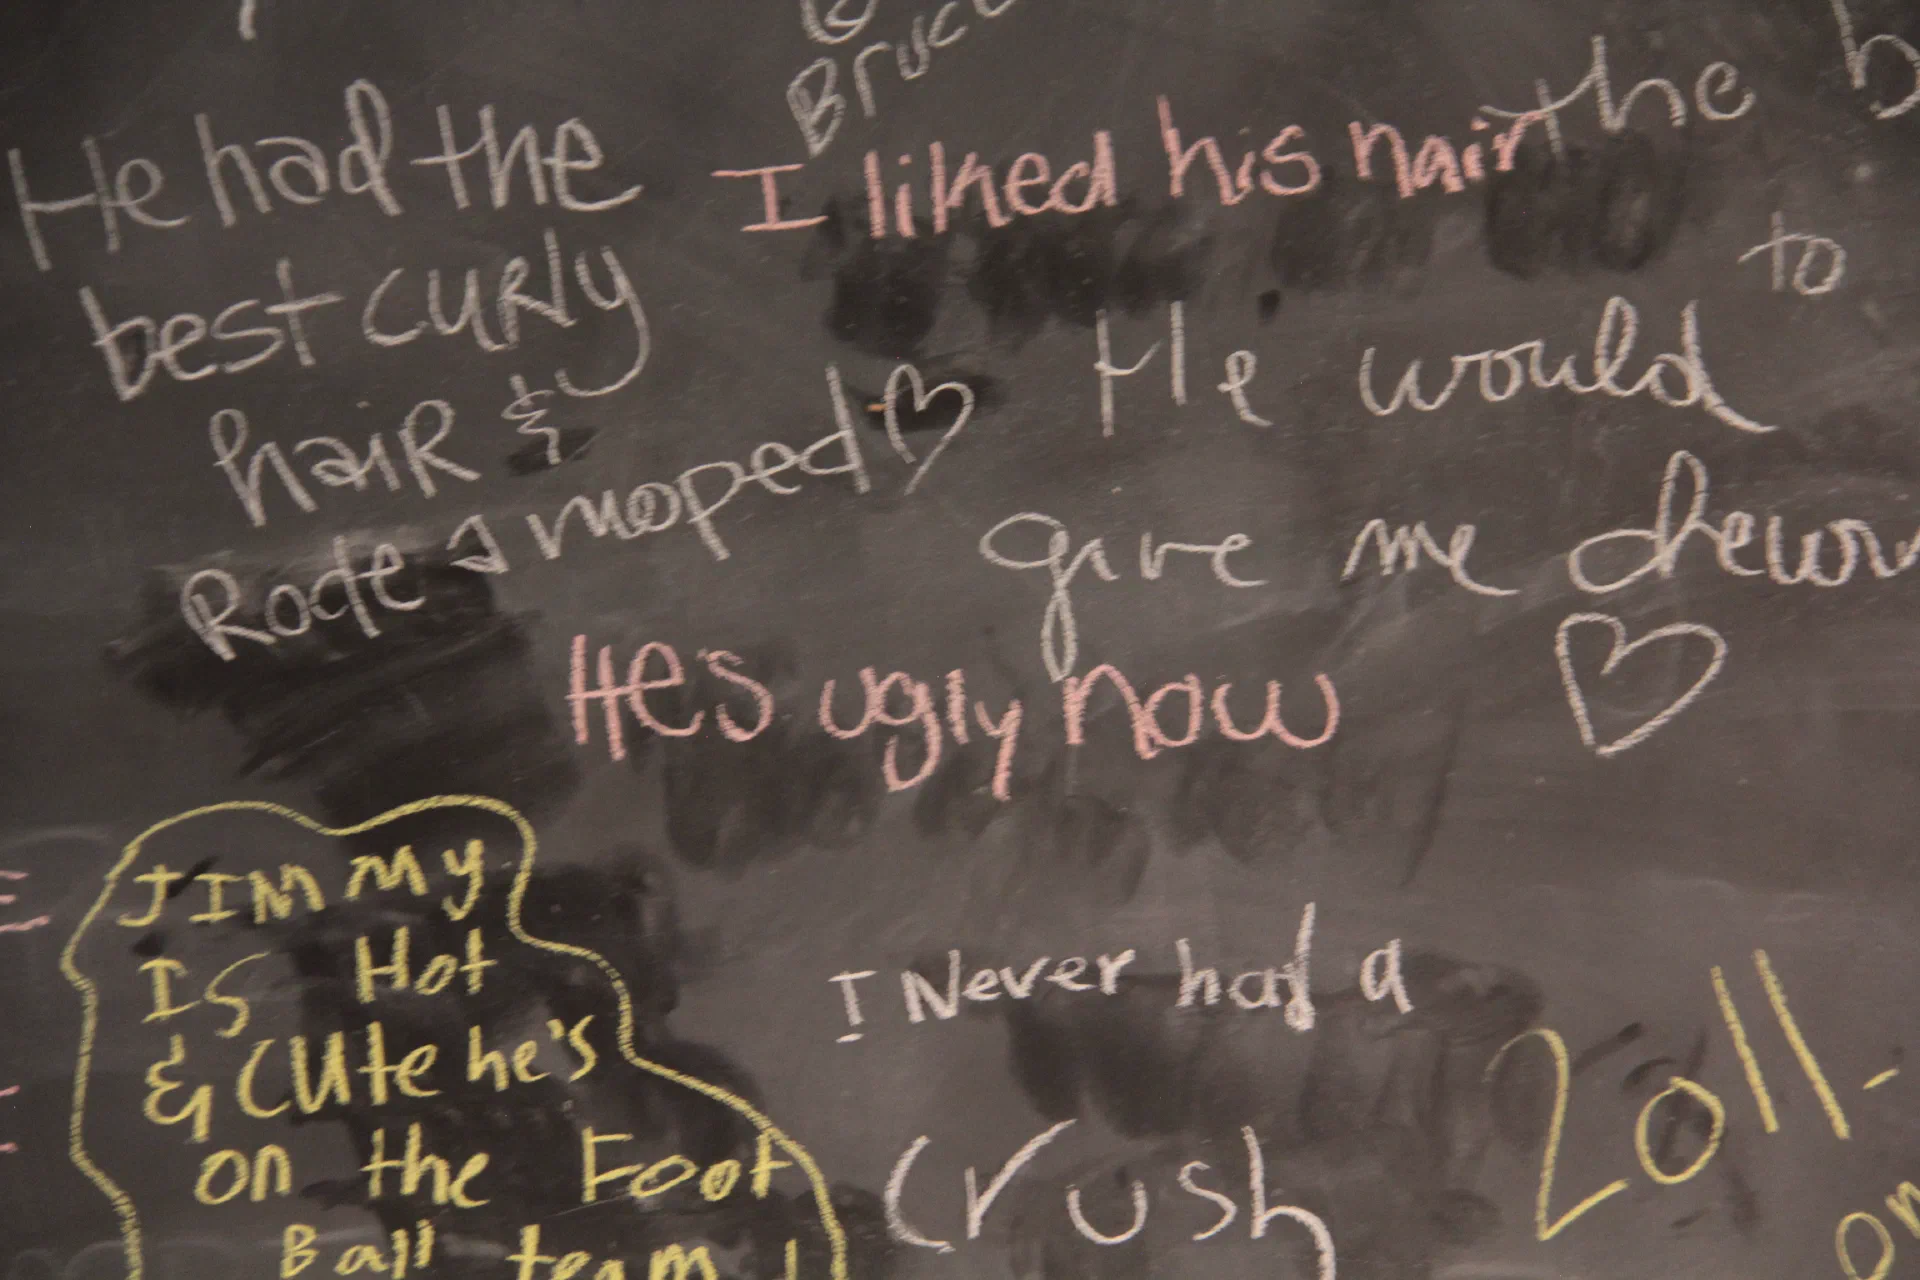 He had the
best curly
haiR &
Rode a moped
I liked his hair
the
to
He would
give me
He's ugly now
JIMMY
IS Hot
& CUte he's
on the Foot
Ball team !
I Never had a
crush
2011-